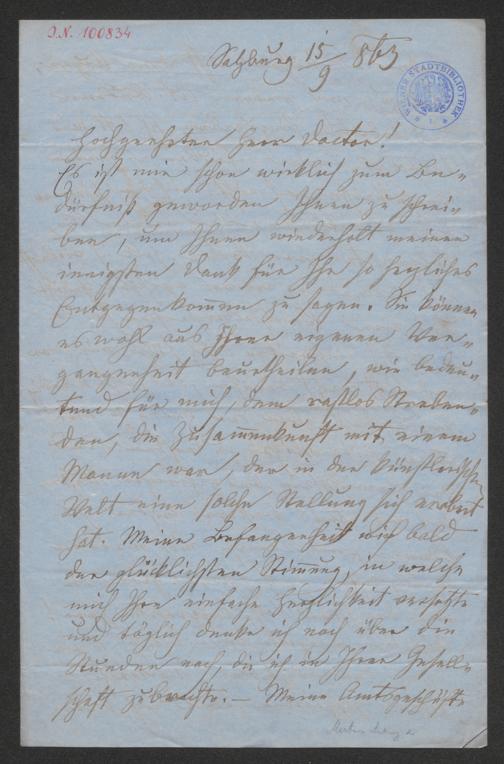 I.N. 100834
Salzburg 15/9 863
WIENER STADTBIBLIOTHEK
Hochgeehrter Herr Doctor!
Es ist mir schon wirklich zum Be-
dürfniß geworden Ihnen zu schrei-
ben, um Ihnen wiederholt meinen
innigsten Dank für Ihr so herzliches
Entgegenkommen zu sagen. Sie können
es wohl aus Ihrer eigenen Ver-
gangenheit beurtheilen, wie bedeu-
tend für mich, dem rastlos Streben-
den, die Zusammenkunft mit einem
Manne war, der in der künstlerischen
Welt eine solche Stellung sich erobert
hat. Meine Befangenheit wich bald
der glücklichsten Stimmung, in welche
mich Ihre einfache Herzlichkeit versetzte
und täglich denke ich noch über die
Stunden nach, die ich in Ihrer Gesell-
schaft zubrachte. – Meine Amtsgeschäfte